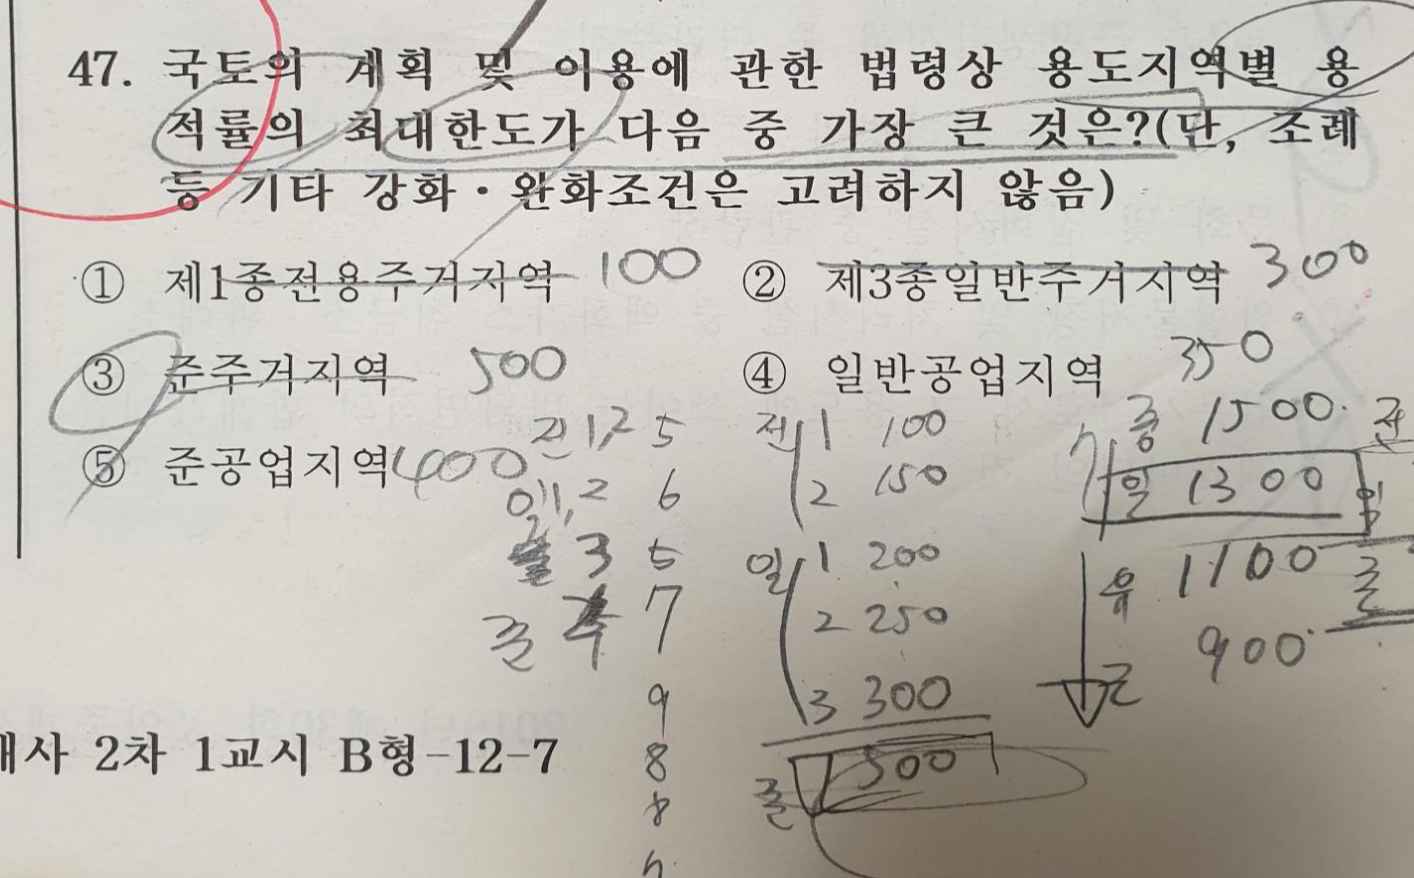 47. 국토의 계획 및 이용에 관한 법령상 용도지역별 용
적률의 최대한도가 다음 중 가장 큰 것은?(단, 조례
등 기타 강화·완화조건은 고려하지 않음)
① 제1종전용주거지역 100
② 제3종일반주거지역 300
③ 준주거지역 500
④ 일반공업지역 350
⑤ 준공업지역 400
전 1,2 5
일 1,2 6
3 5
준 주 7
9
8
8
7
전 1 100
2 150
일 1 200
2 250
3 300
준 500
중 1500
일 1300
유 1100
근 900
전
일
준
사 2차 1교시 B형-12-7